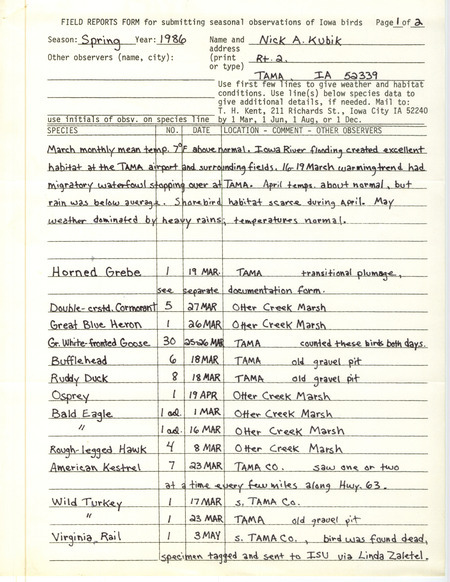 FIELD REPORTS FORM for submitting seasonal observations of Iowa birds Page 1 of 2
Season: Spring Year: 1986 Name and Nick A. Kubik
address
Other observers (name, city): (print Rt. 2.
or type)
TAMA IA 52339
Use first few lines to give weather and habitat
conditions. Use line(s) below species data to
give additional details, if needed. Mail to:
T. H. Kent, 211 Richards St., Iowa City IA 52240
use initials of obsv. on species line by 1 Mar, 1 Jun, 1 Aug, or 1 Dec.
SPECIES NO. DATE LOCATION - COMMENT - OTHER OBSERVERS
March monthly mean temp. 7°F above normal. Iowa River flooding created excellent
habitat at the TAMA airport and surrounding fields. 16-19 March warming trend had
migratory waterfowl stopping over at TAMA. April temps. about normal, but
rain was below average. Shorebird habitat scarce during April. May
weather dominated by heavy rains; temperatures normal.
Horned Grebe 1 19 MAR TAMA transitional plumage,
see separate documentation form.
Double-crstd. Cormorant 5 27 MAR Otter Creek Marsh
Great Blue Heron 1 26 MAR Otter Creek Marsh
Gr. White-fronted Goose 30 25-26 MAR TAMA counted these birds both days.
Bufflehead 6 18 MAR TAMA old gravel pit
Ruddy Duck 8 18 MAR TAMA old gravel pit
Osprey 1 19 APR Otter Creek Marsh
Bald Eagle 1 ad. 1 MAR Otter Creek Marsh
" 1 ad. 16 MAR Otter Creek Marsh
Rough-legged Hawk 4 8 MAR Otter Creek Marsh
American Kestrel 7 23 MAR TAMA CO. saw one or two
at a time every few miles along Hwy. 63.
Wild Turkey 1 17 MAR S. TAMA Co.
" 1 23 MAR TAMA old gravel pit
Virginia Rail 1 3 MAY S. TAMA CO., bird was found dead,
specimen tagged and sent to ISU via Linda Zaletel.